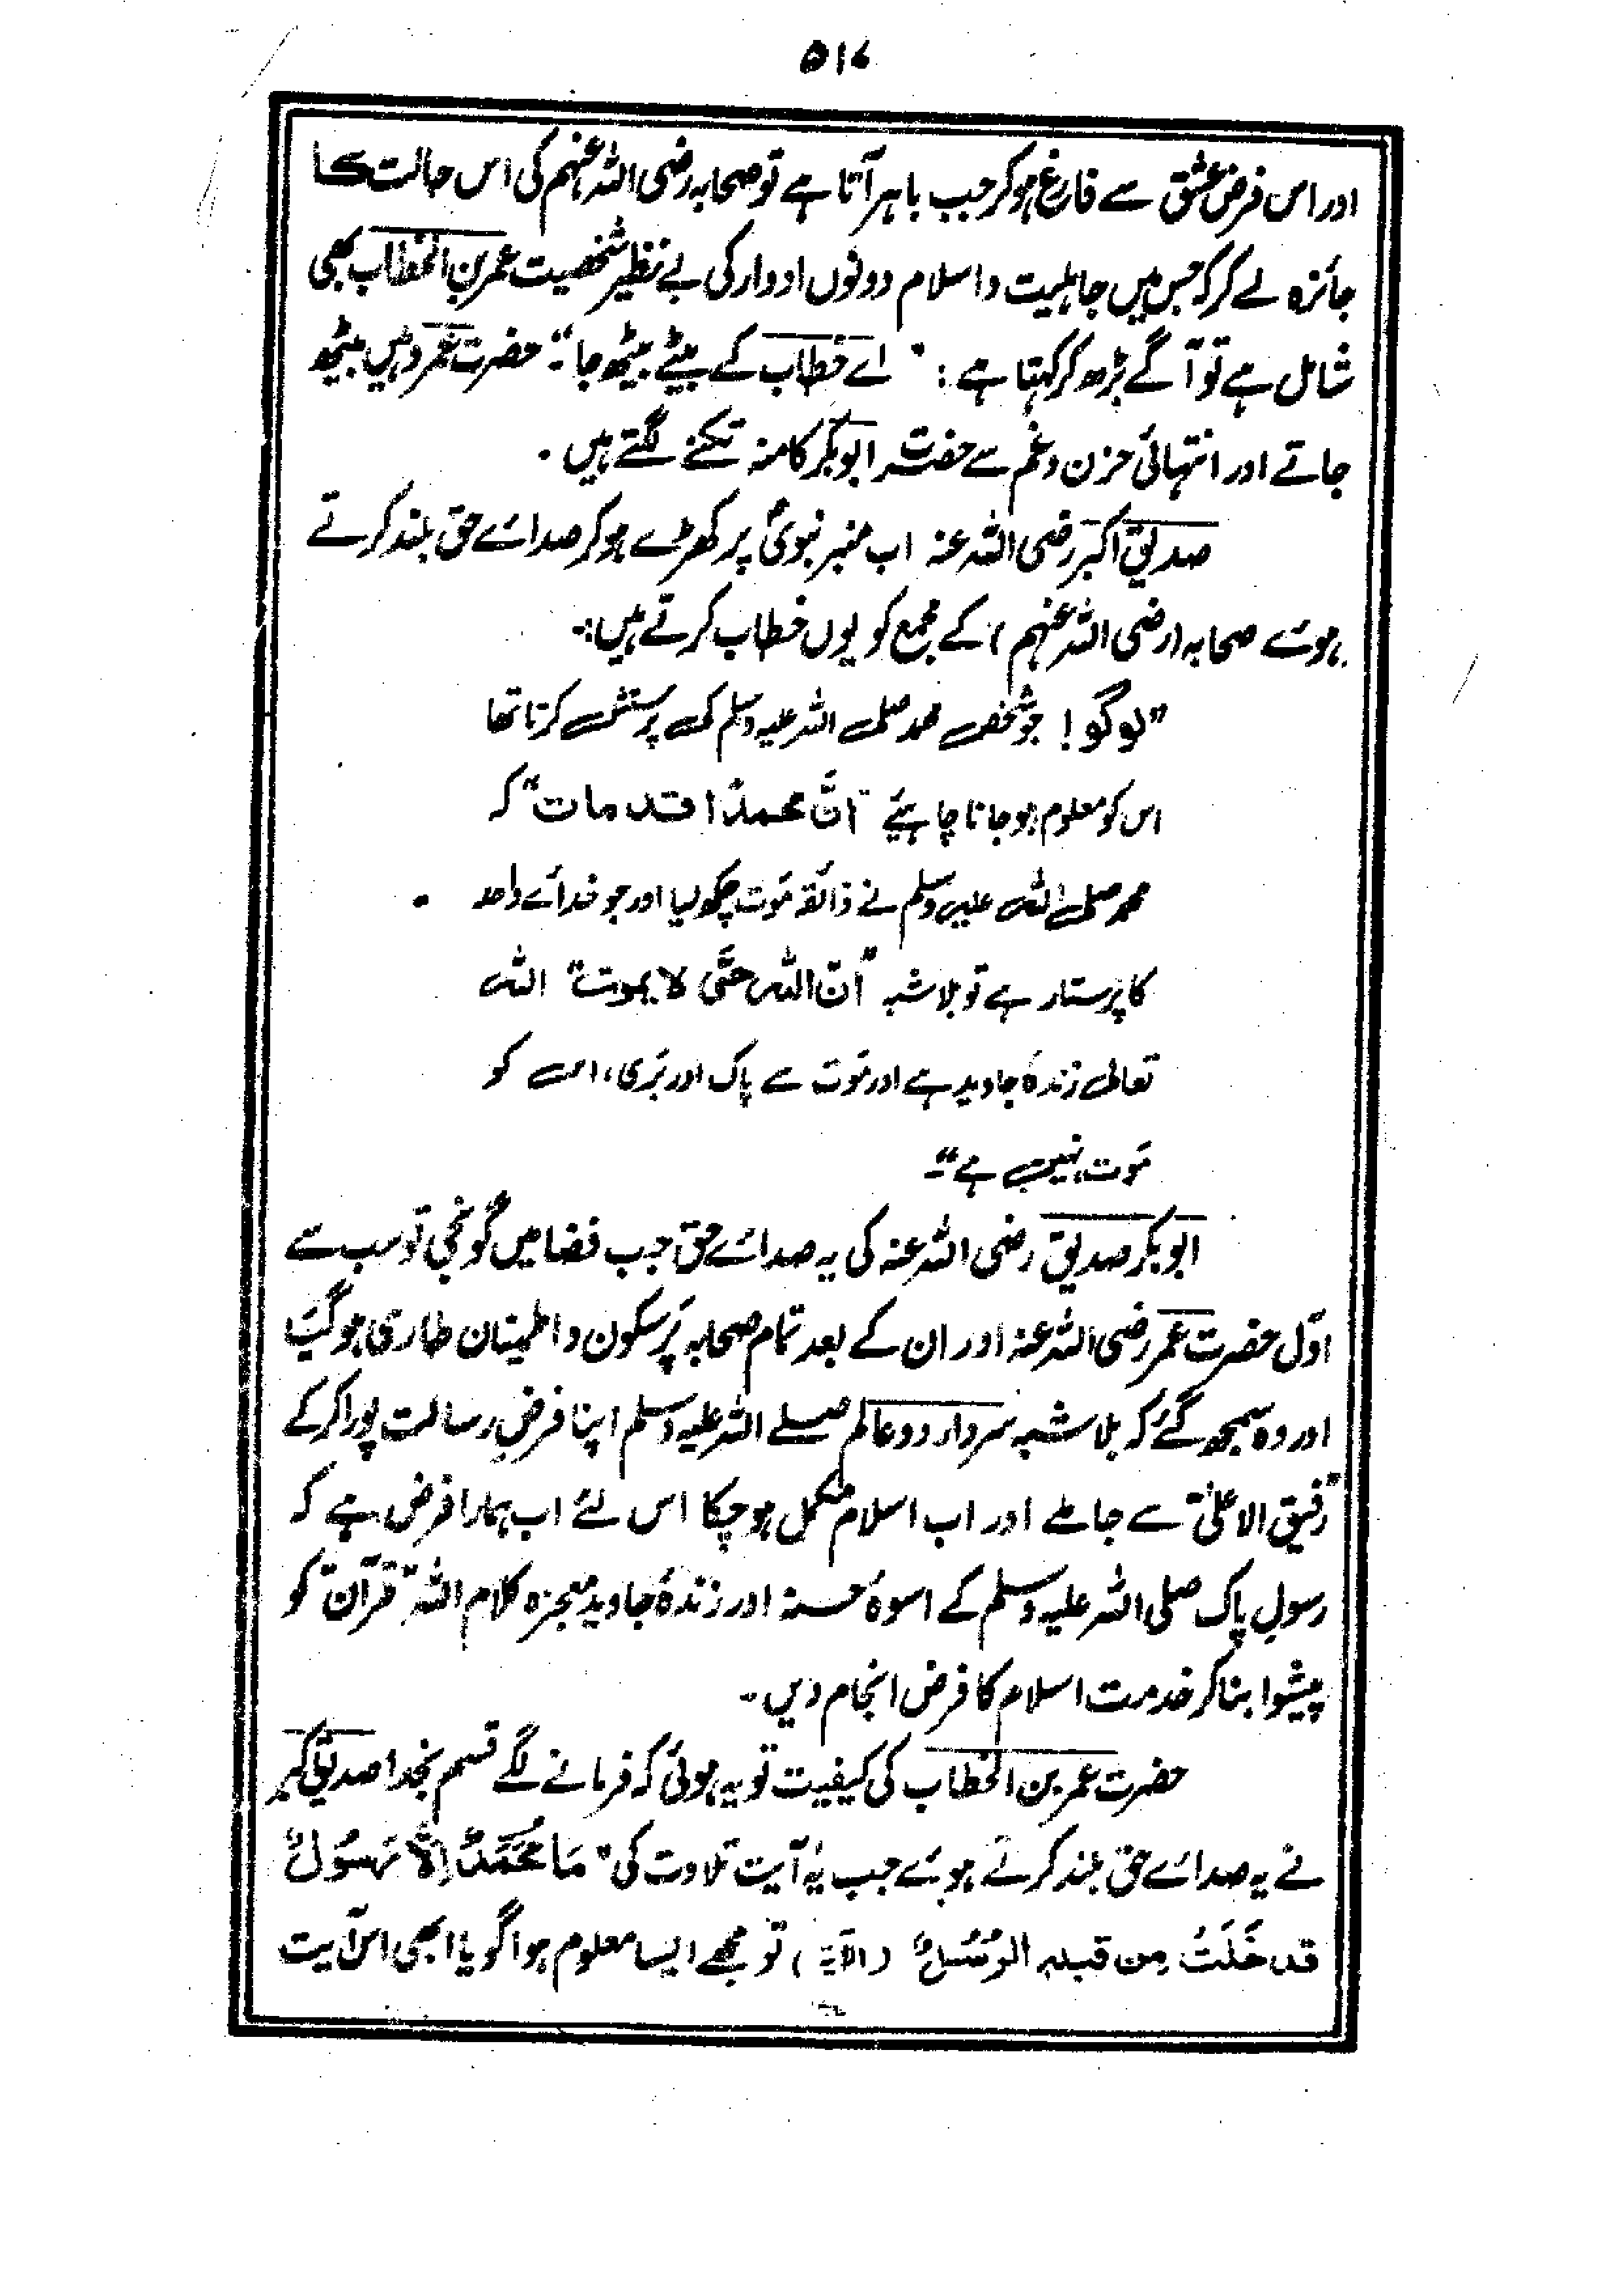 ۵۱۷
اور اس فرض عشق سے فارغ ہو کر جب باہر آتا ہے تو صحابہ رضی اللہ عنہم کی اس حالت کا
جائزہ لے کر کہ جس میں جاہلیت و اسلام دونوں ادوار کی بے نظیر شخصیت عمر بن الخطاب بھی
شامل ہے تو آگے بڑھ کر کہتا ہے: "اے خطاب کے بیٹے بیٹھ جا"۔ حضرت عمر وہیں بیٹھ
جاتے اور انتہائی حزن و غم سے حضرت ابوبکر کا منہ تکنے لگتے ہیں۔
صدیق اکبر رضی اللہ عنہ اب منبر نبویؐ پر کھڑے ہو کر صدائے حق بلند کرتے
ہوئے صحابہ (رضی اللہ عنہم) کے مجمع کو یوں خطاب کرتے ہیں:۔
"لوگو! جو شخص محمد صلی اللہ علیہ وسلم کی پرستش کرتا تھا
اس کو معلوم ہو جانا چاہیئے "انَّ محمدًا قد مات" کہ
محمد صلی اللہ علیہ وسلم نے ذائقہ مَوت چکھ لیا اور جو خدائے واحد
کا پرستار ہے تو بلا شبہ "انّ اللہ حَیّ لا یموت" اللہ
تعالی زندہٴ جاوید ہے اور مَوت سے پاک اور بَری، اس کو
مَوت نہیں ہے"۔
ابوبکر صدیق رضی اللہ عنہ کی یہ صدائے حق جب فضا میں گونجی تو سب سے
اوّل حضرت عمر رضی اللہ عنہ اور ان کے بعد تمام صحابہ پَر سکون و اطمینان طاری ہو گیَا
اور وہ سمجھ گئے کہ بلا شبہ سردار دو عالم صلے اللہ علیہ وسلم اپنا فرضِ رسالت پورا کر کے
"رفیق الاعلیٰ" سے جا ملے اور اب اسلام مکمل ہو چکا اس لئے اب ہمارا فرض ہے کہ
رسولِ پاک صلی اللہ علیہ وسلم کے اسوۂ حسنہ اور زندۂ جاوید معجزہ کلام اللہ "قرآن" کو
پیشوا بنا کر خدمت اسلام کا فرض انجام دیں۔
حضرت عمر بن الخطاب کی کیفیت تو یہ ہوئی کہ فرمانے لگے قسم بخدا صدیق اکبر
نے یہ صدائے حق بلند کرتے ہوئے جب یہ آیت تلاوت کی "مَا مُحَمَّدٌ اِلَّا رَسُولٌ
قد خَلَتُ مِن قبلہ الرُسُلُ" (الآیۃ) تو مجھے ایسا معلوم ہوا گویا ابھی اس آیت